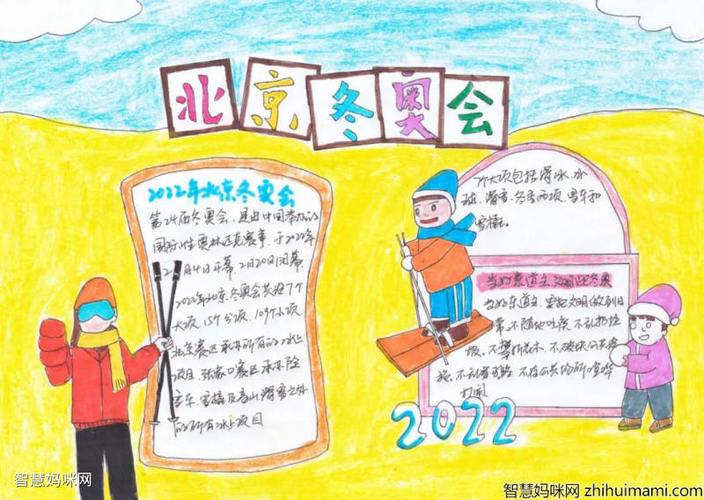 北京冬奥会
2022年北京冬奥会
第24届冬奥会,是由中国举办的
国际性奥林匹克赛事,于2022年
2月4日开幕,2月20日闭幕。
2022年北京冬奥会共设7个
大项,15个分项,109个小项
北京赛区承办所有的冰上
项目 张家口赛区承办除
雪车、雪橇及高山滑雪之外
的所有冰上项目
7个大项包括滑冰、冰
球、滑雪、冬季两项、雪车和
雪橇。
当好东道主 文明迎冬奥
当好东道主,要把文明做到日
常,不随地吐痰、不乱扔垃
圾、不攀折花木、不破坏公共设
施、不乱 不在公共场所喧哗
打闹
2022
智慧妈咪网
智慧妈咪网 zhihuimami.com